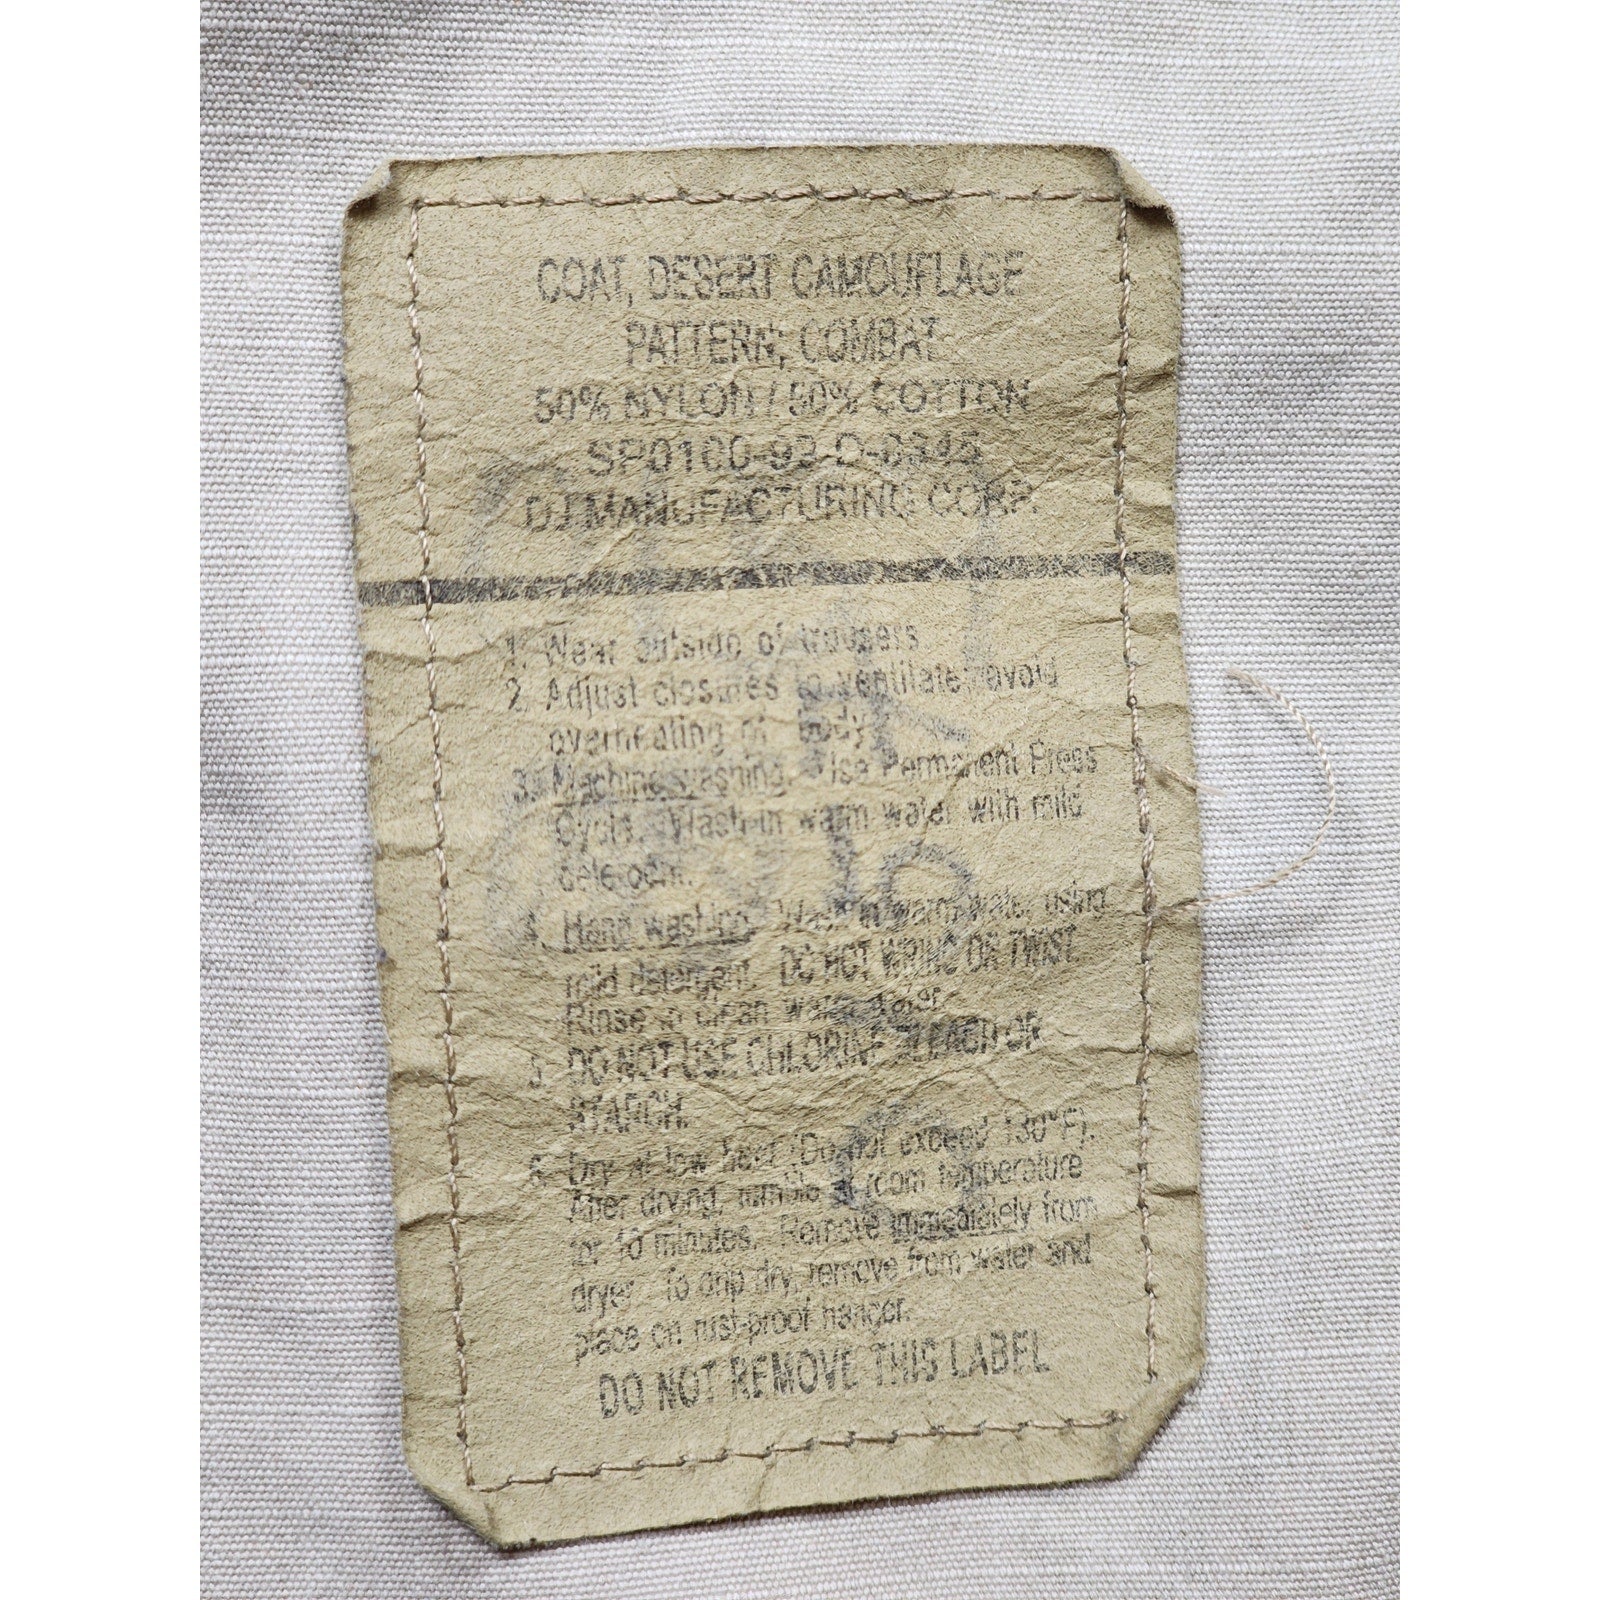 COAT, DESERT CAMOUFLAGE
PATTERN; COMBAT
50% NYLON / 50% COTTON
SP0100-92-D-0345
DJ MANUFACTURING CORP.
1. Wear outside of trousers.
2. Adjust closures to ventilate, avoid
overheating of body
3. Machine washing Use Permanent Press
Cycle. Wash in warm water with mild
detergent.
4. Hand washing Wash in warm water using
mild detergent. DO NOT WRING OR TWIST.
Rinse in clean warm water.
5. DO NOT USE CHLORINE BLEACH OR
STARCH.
6. Dry at low heat (Do not exceed 130°F).
After drying, tumble at room temperature
for 10 minutes. Remove immediately from
dryer. To drip dry, remove from water and
place on rust-proof hanger.
DO NOT REMOVE THIS LABEL